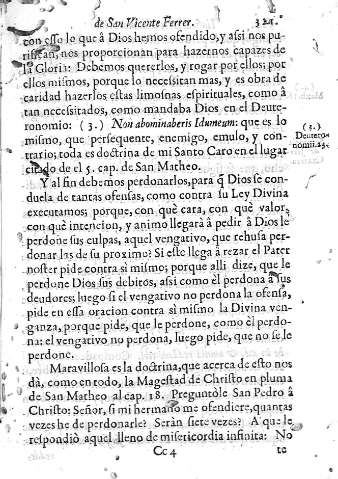 de San Vicente Ferrer. 321.
con esso lo que à Dios hemos ofendido, y assi nos pu-
rifican, nos proporcionan para hazernos capazes de
la Gloria: Debemos quererlos, y rogar por ellos; por
ellos mismos, porque lo necessitan mas, y es obra de
caridad hazerlos estas limosnas espirituales, como à
tan necessitados, como mandaba Dios en el Deute-
ronomio: (3.) Non abominaberis Idumeum: que es lo
mismo, que persequente, enemigo, emulo, y con-
trario; toda es doctrina de mi Santo Caro en el lugar
citado de el 5. cap. de San Matheo.
(3.)
Deutero-
nomii.23.
Y al fin debemos perdonarlos, para q̃ Dios se con-
duela de tantas ofensas, como contra su Ley Divina
executamos; porque, con què cara, con què valor,
con què intencion, y animo llegarà à pedir à Dios le
perdone sus culpas, aquel vengativo, que rehusa per-
donar las de su proximo? Si este llega à rezar el Pater
noster pide contra sì mismo; porque alli dize, que le
perdone Dios sus debitos, assi como èl perdona à sus
deudores; luego si el vengativo no perdona la ofensa,
pide en essa oracion contra sì mismo la Divina ven-
ganza, porque pide, que le perdone, como èl perdo-
na: el vengativo no perdona, luego pide, que no se le
perdone.
Maravillosa es la doctrina, que acerca de esto nos
dà, como en todo, la Magestad de Christo en pluma
de San Matheo al cap. 18. Preguntòle San Pedro à
Christo: Señor, si mi hermano me ofendiere, quantas
vezes he de perdonarle? Seràn siete vezes? A que le
respondiò aquel lleno de misericordia infinita: No
Cc 4 te